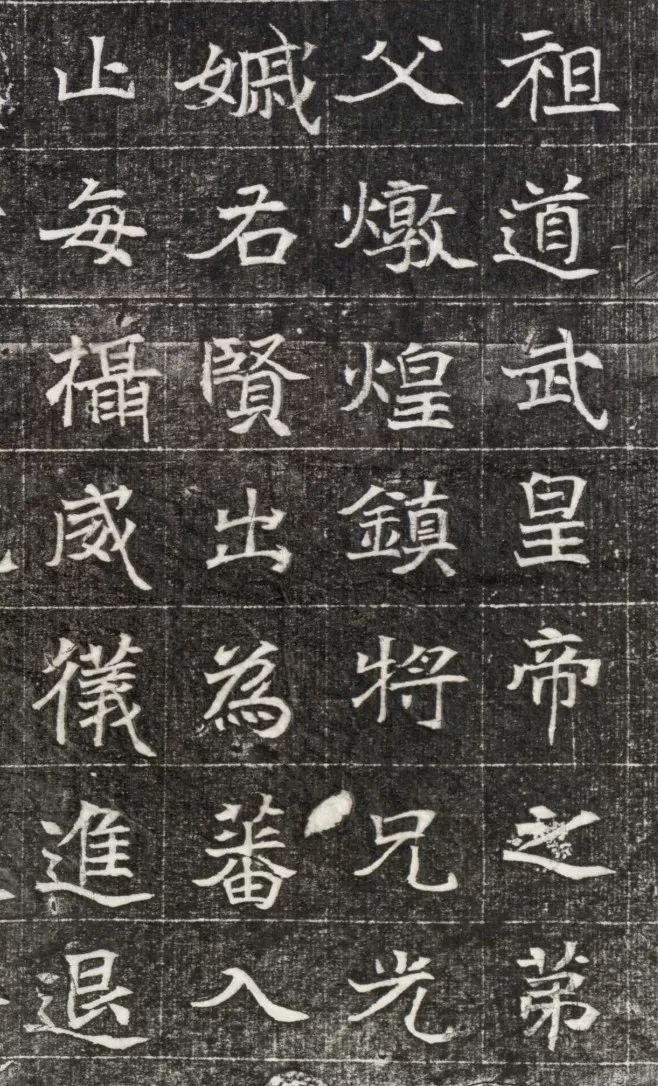 祖道武皇帝之苐
父燉煌鎮將兄光
君賢出為蕃入
止每攝威儀進退